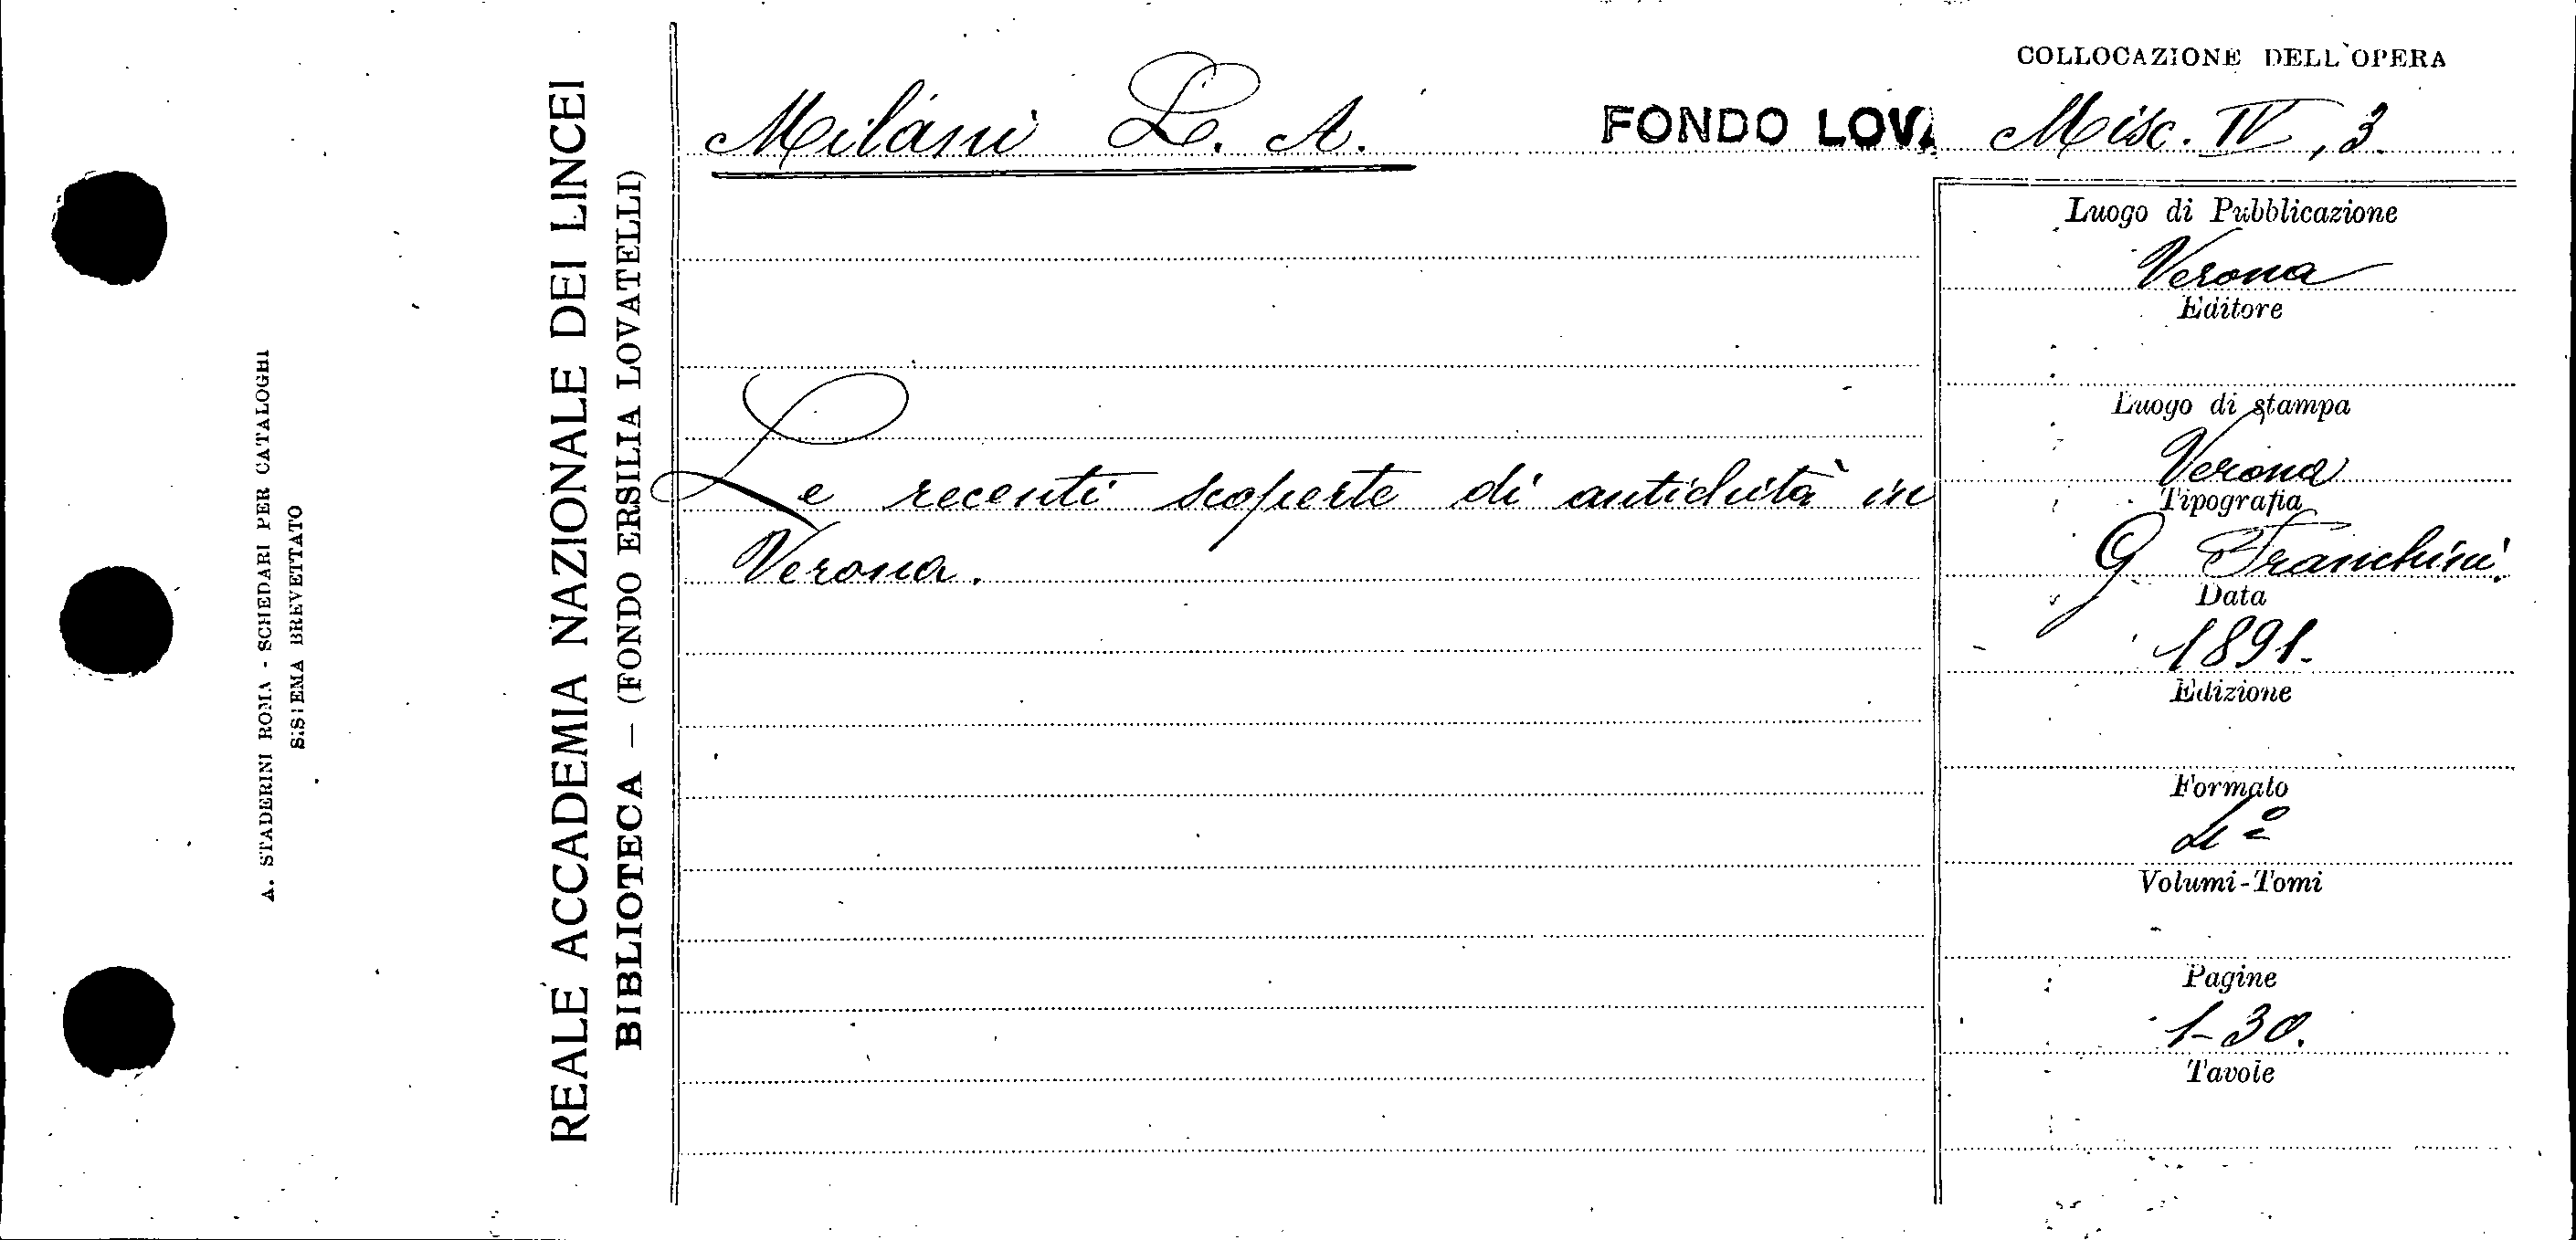 A. STADERINI ROMA - SCHEDARI PER CATALOGHI
SISTEMA BREVETTATO
REALE ACCADEMIA NAZIONALE DEI LINCEI
BIBLIOTECA — (FONDO ERSILIA LOVATELLI)
Milani L. A.
FONDO LOVA
Le recenti scoperte di antichità in
Verona.
COLLOCAZIONE DELL'OPERA
Misc. IV, 3.
Luogo di Pubblicazione
Verona
Editore
Luogo di stampa
Verona
Tipografia
G Franchini
Data
1891.
Edizione
Formato
4º
Volumi-Tomi
Pagine
1-30.
Tavole